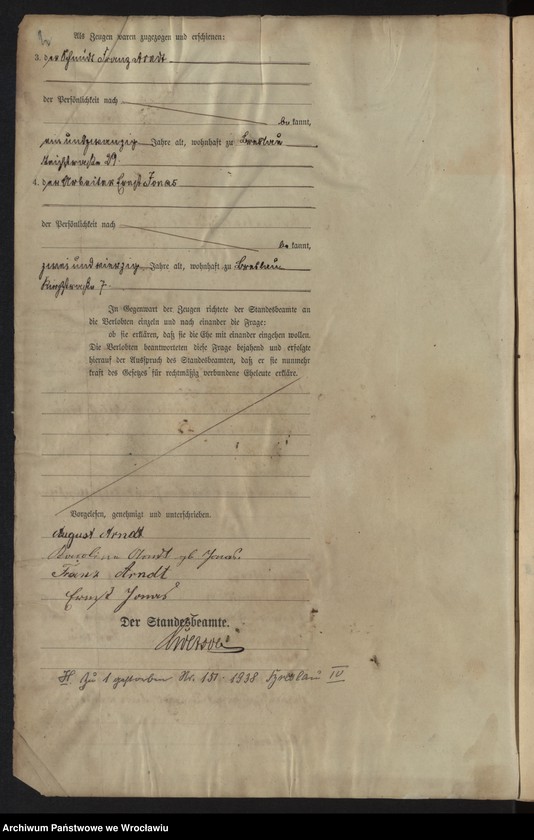 Als Zeugen waren zugezogen und erschienen:
3. der Schmidt Franz Arndt
der Persönlichkeit nach
be kannt,
ein und zwanzig Jahre alt, wohnhaft zu Breslau
29.
4. der Arbeiter Ernst Jonas
der Persönlichkeit nach
be kannt,
zwei und vierzig Jahre alt, wohnhaft zu Breslau
7.
In Gegenwart der Zeugen richtete der Standesbeamte an
die Verlobten einzeln und nach einander die Frage:
ob sie erklären, daß sie die Ehe mit einander eingehen wollen.
Die Verlobten beantworteten diese Frage bejahend und erfolgte
hierauf der Ausspruch des Standesbeamten, daß er sie nunmehr
kraft des Gesetzes für rechtmäßig verbundene Eheleute erkläre.
Vorgelesen, genehmigt und unterschrieben.
August Arndt
Arndt geb Jonas.
Franz Arndt
Ernst Jonas
Der Standesbeamte.
H. Zu 1 gestorben Nr. 151. 1938 Breslau IV
Archiwum Państwowe we Wrocławiu